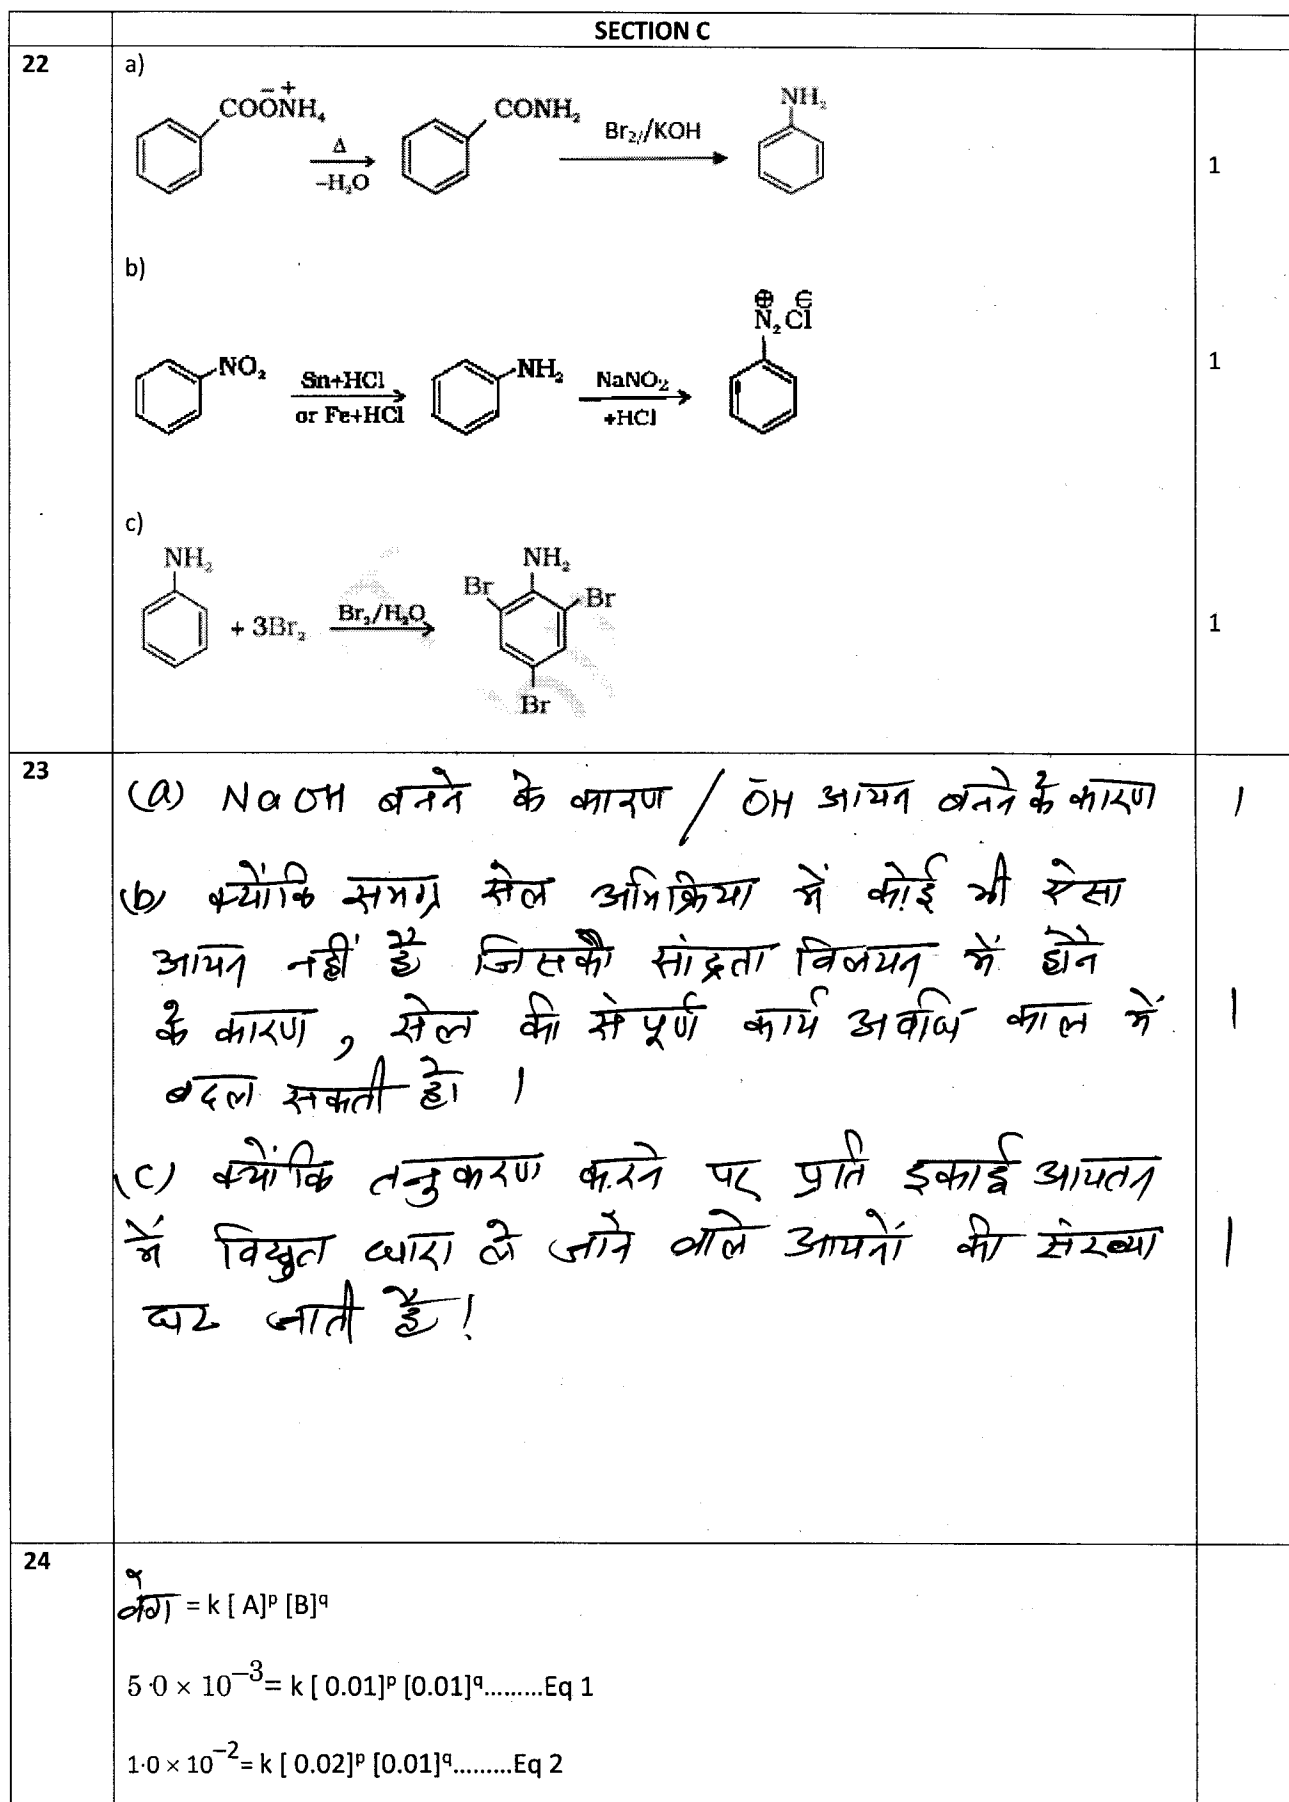 SECTION C
22
a)
COO⁻N⁺H₄ CONH₂ NH₂
Δ Br₂/KOH
–H₂O
1
b)
N₂Cl
NO₂ Sn+HCl NH₂ NaNO₂
or Fe+HCl +HCl
1
c)
NH₂ NH₂
Br Br
+ 3Br₂ Br₂/H₂O
Br
1
23
(a) NaOH बनने के कारण / ŌH आयन बनने के कारण 1
(b) क्योंकि समग्र सेल अभिक्रिया में कोई भी ऐसा
आयन नहीं है जिसकी सांद्रता विलयन में होने
के कारण, सेल की संपूर्ण कार्य अवधि काल में 1
बदल सकती हो ।
(c) क्योंकि तनुकरण करने पर प्रति इकाई आयतन
में विद्युत धारा ले जाने वाले आयनों की संख्या 1
घट जाती है !
24
वेग = k [ A]ᵖ [B]ᑫ
5·0 × 10⁻³= k [ 0.01]ᵖ [0.01]ᑫ.........Eq 1
1·0 × 10⁻²= k [ 0.02]ᵖ [0.01]ᑫ.........Eq 2